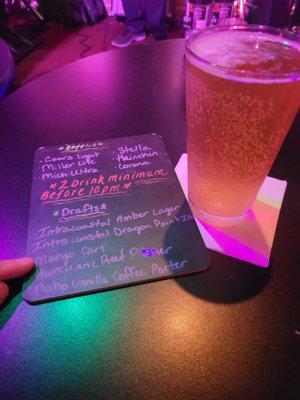 *Bottles*
Coors light
Stella
Miller Lite
Heinehen
Mich Ultra
Corona
*2 Drink minimum
Before 10pm*
*Drafts*
Intracoastal Amber Lager
Intracoastal Dragon Point IPA
Mango Cart
Hurricane Reef Porter
Nobo Vanilla Coffee Porter